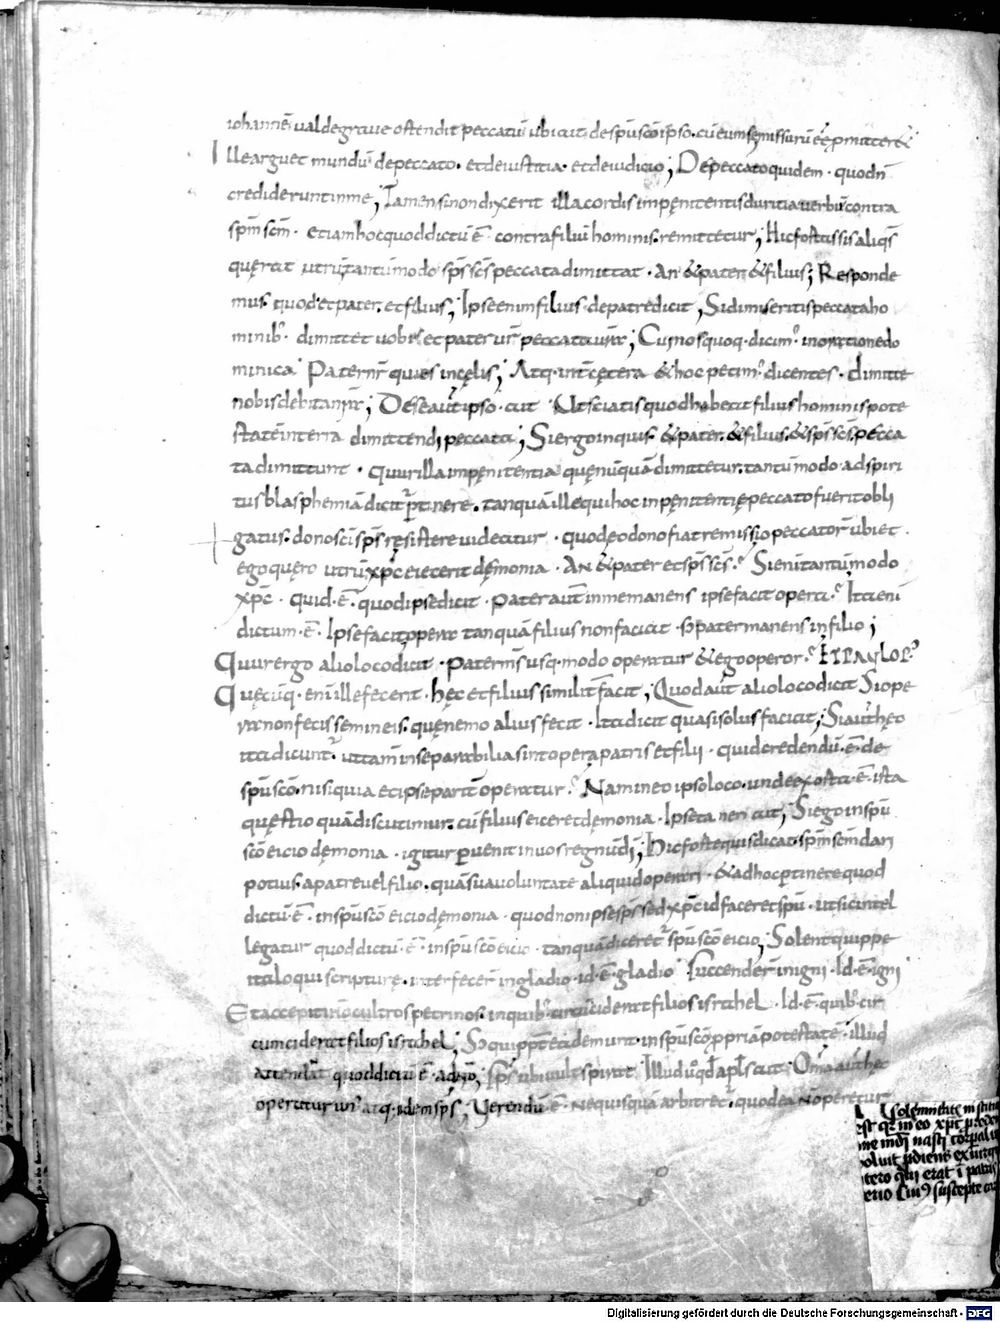 iohannē ualde graue ostendit peccatū ubi ait de spū sc̄o ipso. cū eum se missurū ēē pmitteret
Ille arguet mundū de peccato. et de iustitia. et de iudicio; De peccato quidem. quod n̄
crediderunt in me; Tamen si non dixerit illa cordis inpęnitentis duritia uerbū contra
spm̄ scm̄. etiam hoc quod dictū ē. contra filiū hominis. remittetur; Hic fortassis aliqs
querat utrū tantūmodo sps̄ scs̄ peccata dimittat. An & pater & filius; Responde
mus. quod et pater. et filius; Ipse enim filius de patre dicit, Si dimiseritis peccata ho
minib; dimittet uobis et pater ur̄ peccata urā; Cui nos quoq. dicim; in oratione do
minica Pater nr̄ qui es in cęlis; Atq. int cętera & hoc petim; dicentes. dimitte
nobis debita nr̄a; De se aut̄ ipso. ait Ut sciatis quod habeat filius hominis pote
statē in terra dimittendi peccata; Si ergo inquis. & pater. & filius. & sps̄ scs̄. pecca
ta dimittunt. Quur illa inpęnitentia quę nūquā dimittetur. tantūmodo ad spiri
tus blasphemiā dicit̄ ptinere. tanquā ille qui hoc inpęnitentię peccato fuerit obli
gatus. dono sci sps̄ resistere uideatur. quod eo dono fiat remissio peccatorū ubi et
ego quęro utrū xpc̄ eiecerit dęmonia. An & pater et sps̄ scs̄. Si eni tantūmodo
xpc̄. quid. ē. quod ipse dicit. Pater aut̄ in me manens ipse facit opera. Ita eni
dictum. ē. Ipse facit opera tanquā filius non faciat. sꝫ pater manens in filio;
Quur ergo alio loco dicit. Pater ms̄ usq. modo operatur & ego operor.
Quęcūq. eni ille fecerit. hęc et filius similit̄ facit; Quod aut̄ alio loco dicit Si ope
ra non fecissem in eis. quę nemo alius fecit. Ita dicit quasi solus faciat; Si aut̄ hęc
ita dicunt̄. ut tam̄ inseparabilia sint opera patris et filii. quid credendū. ē. de
spū sc̄o. nisi quia et ipse parit̄ operatur. Nam in eo ipso loco. unde exorta ē. ista
questio quā discutimur. cū filius eiceret dęmonia. Ipse tamen ait, Si ego in spū
sc̄o eicio dęmonia. igitur puenit in uos regnū di; Hic forte quis dicat. spm̄ scm̄ dari
potius. a patre uel filio. quā sua uoluntate aliquid operari. & ad hoc ptinere quod
dictū ē. in spū sc̄o eicio dęmonia. quod non ipse sps̄ sed xpc̄ id faceret spū. ut sic intel
legatur quod dictū. ē. in spū sc̄o eicio. tanquā diceret̄ spū sc̄o eicio; Solent quippe
ita loqui scripture. interfecer̄ in gladio. id. ē. gladio Succender̄ in igni. Id. ē. igni
Et accepit ihū cultros petrinos. in quib; circūcideret filios israhel. Id. ē. quib; cir
cumcideret filios israhel;
attendat quod dictū ē. a dn̄o, sps̄ ubi uult spirat Illud u° qd apls̄ ait. Omia aut̄ hęc
operatur un; atq. idem sps̄; Uerendū ē. ne quisquā arbitret̄. quod ea n̄ operetur
solemnitate